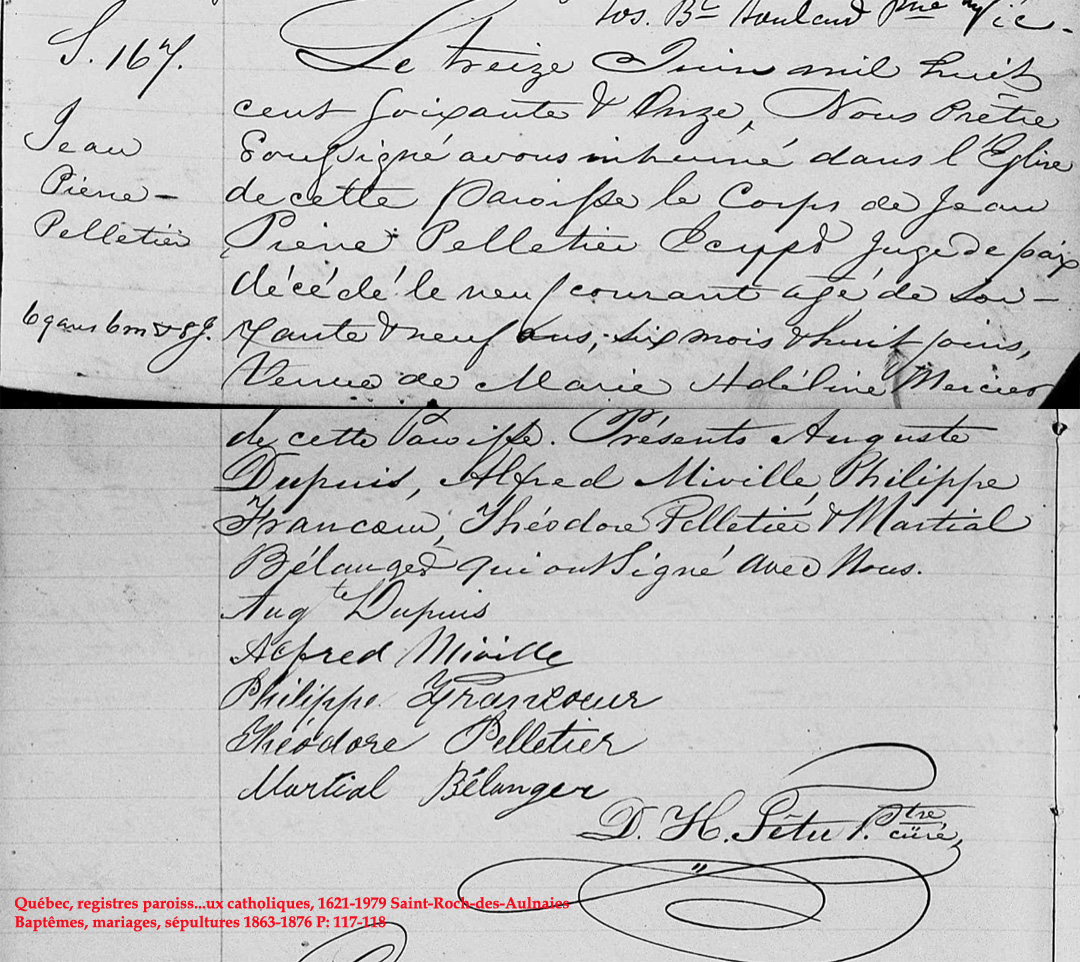 Jos. Bte
S. 167.
Le treize Juin mil huit
cent soixante & Onze, Nous Prêtre
Jean
Soussigné avons inhumé dans l'Eglise
Pierre –
de cette Paroisse le Corps de Jean
Pelletier
Pierre Pelletier juge de paix
décédé le neuf courant agé de soi-
69 ans 6 m & 8 J.
xante & neuf ans, six mois & huit jours,
de Marie Adéline Mercier
de cette Paroisse. Présents Auguste
Dupuis, Alfred Miville, Philippe
Francœur, Théodore Pelletier & Martial
Bélanger qui ont Signé avec Nous.
Augte Dupuis
Alfred Miville
Philippe Francoeur
Théodore Pelletier
Martial Bélanger
D. H. Têtu Ptre curé,
Québec, registres paroiss...ux catholiques, 1621-1979 Saint-Roch-des-Aulnaies
Baptêmes, mariages, sépultures 1863-1876 P: 117-118